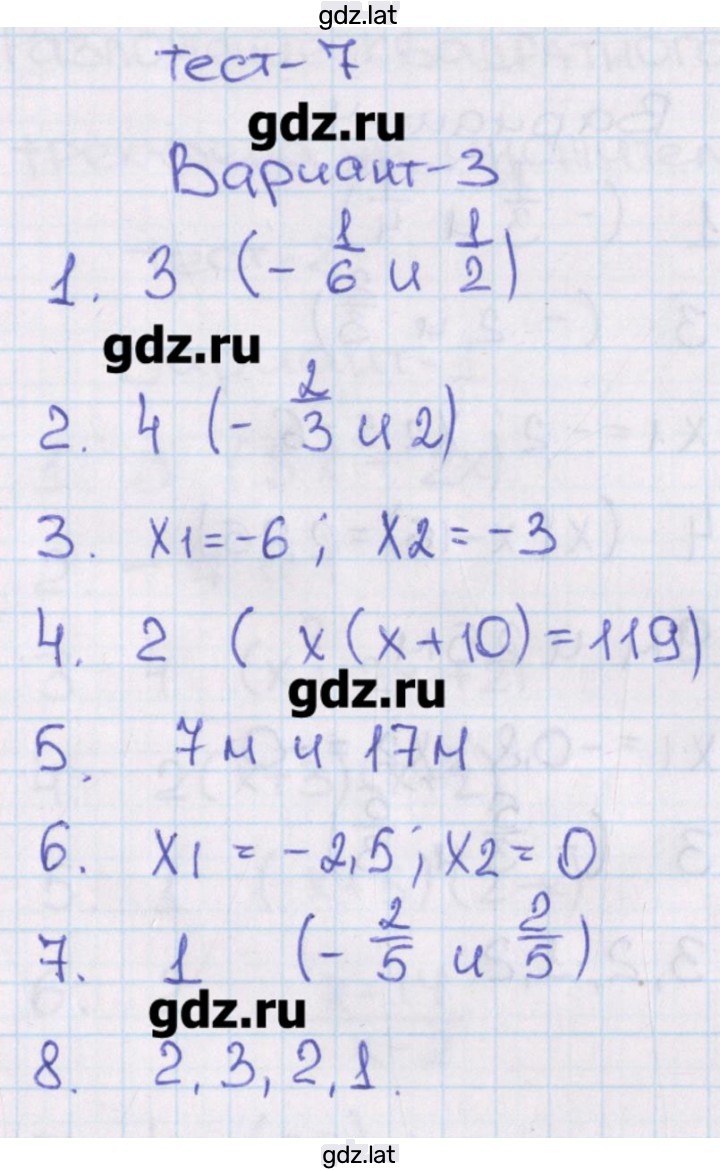 gdz.lat
Тест-7
gdz.ru
Вариант-3
1. 3 (- 1/6 и 1/2)
gdz.ru
2. 4 (- 2/3 и 2)
3. x1=-6; x2=-3
4. 2 ( x(x+10)=119)
gdz.ru
5. 7м и 17м
6. x1 = -2,5; x2= 0
7. 1 (- 2/5 и 2/5)
gdz.ru
8. 2, 3, 2, 1.
gdz.lat